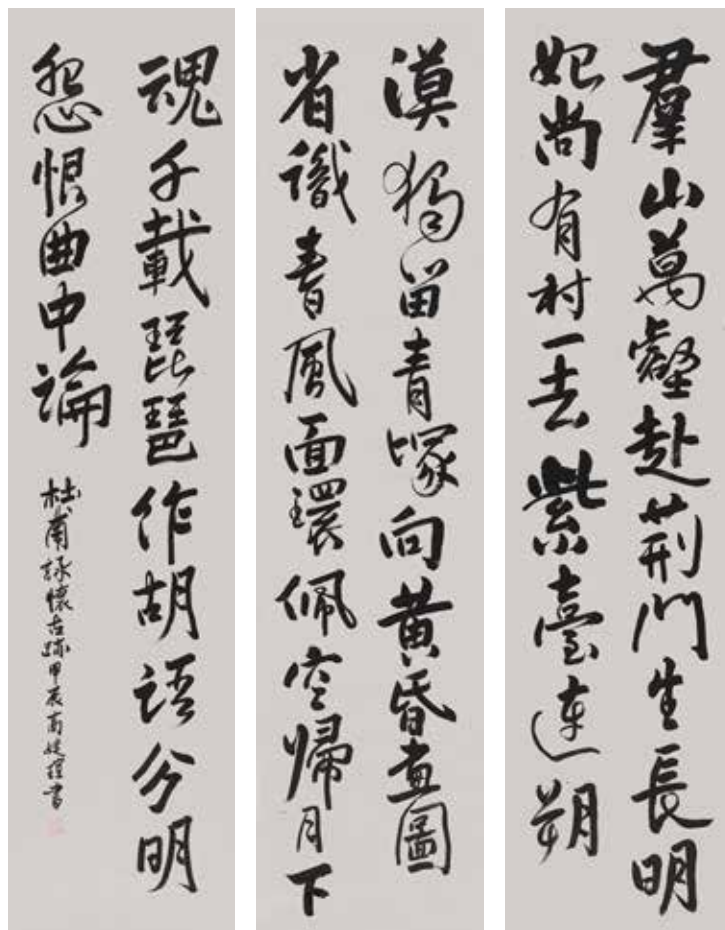 羣山萬壑赴荆門生長明
妃尚有村一去紫臺連朔
漠獨留青塚向黄昏畫圖
省識春風面環佩空歸月下
魂千載琵琶作胡語分明
怨恨曲中論
杜甫詠懷古跡甲辰書